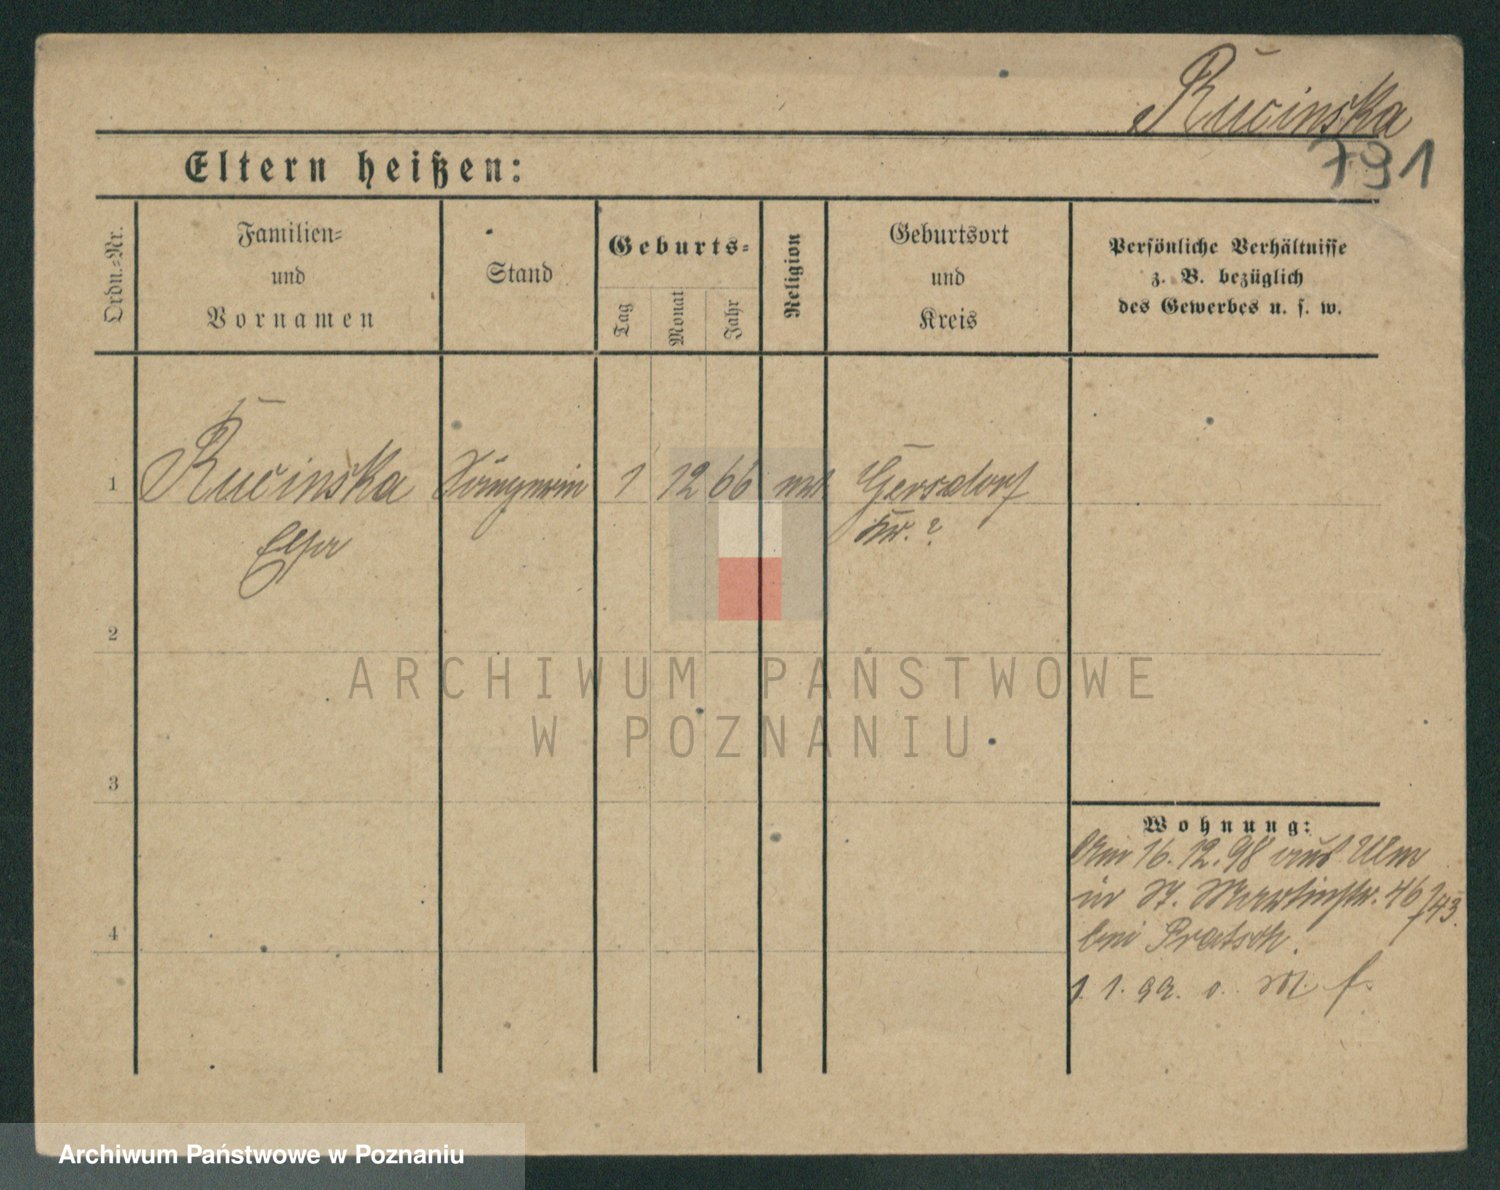 Rucinska
791
Eltern heißen:
Ordn.-Nr.
Familien-
und
Vornamen
Stand
Geburts-
Tag
Monat
Jahr
Religion
Geburtsort
und
Kreis
Persönliche Verhältnisse
z. B. bezüglich
des Gewerbes u. s. w.
1
Rucinska
Sängerin
1
12
66
Gersdorf
Kr. ?
2
ARCHIWUM PAŃSTWOWE
W POZNANIU
3
Wohnung:
16.12.98 aus Ulm
in St. Martinstr. 46/43.
bei Pratsch.
4
1. 1. 99.
Archiwum Państwowe w Poznaniu